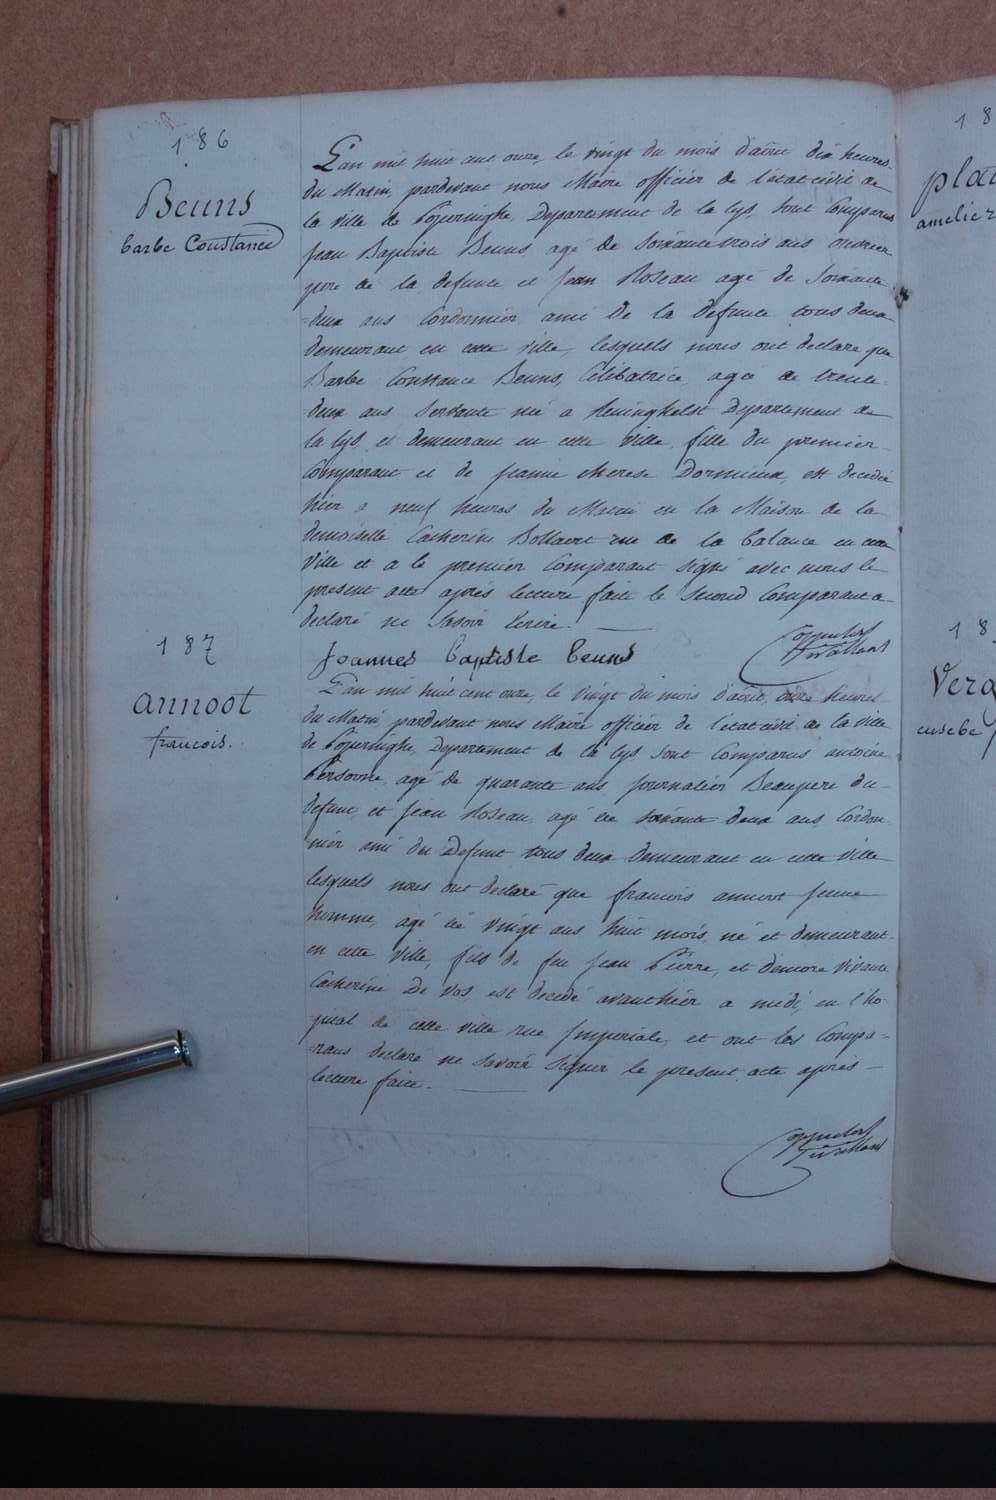 186
Beuns
barbe Constance
L'an mil huit cent onze, le vingt du mois d'août dix heures
du Matin, pardevant nous Maire officier de l'état civil de
la ville de Poperinghe, Departement de la Lys, sont Comparus
Jean Baptiste Beuns, agé de soixante trois ans ouvrier
pere de la defunte et Jean Roseau agé de Soixante
=deux ans Cordonnier ami de la defunte tous deux
demeurant en cette ville, lesquels nous ont declare que
Barbe Constance Beuns, Célibatrice, agée de trente=
=deux ans servante née a Reninghelst Departement de
la Lys, et demeurant en cette ville, fille du premier
Comparant et de Jeanne therese Dormieux, est decedée
hier a neuf heures du Matin en la Maison de la
demoiselle Catherine Bollaert rue de la balance en cette
ville et a le premier Comparant signé avec nous le
present acte après lecture faite le second Comparant a
declaré ne savoir Ecrire.
Joannes baptiste beuns
187
annoot
francois.
L'an mil huit cent onze, le vingt du mois d'août, onze heures
du Matin, pardevant nous Maire officier de l'état civil de la ville
de Poperinghe, Departement de la Lys sont Comparus antoine
Persoone, agé de quarante ans Journalier Beaupere du
defunt, et Jean Roseau, agé de soixante deux ans, Cordon
nier ami du Defunt tous deux demeurant en cette ville
lesquels nous ont declaré que francois annoot Jeune
homme, agé de vingt ans huit mois, né et demeurant
en cette ville, fils de feu Jean Pierre, et d'encore vivante
Catherine De Vos est decedé avanthier a midi, en l'ho
pital de cette ville rue Imperiale, et ont les Compa=
=rans declaré ne savoir signer le present acte après
lecture faite.
18
plat
amelie
18
Verq
eusebe